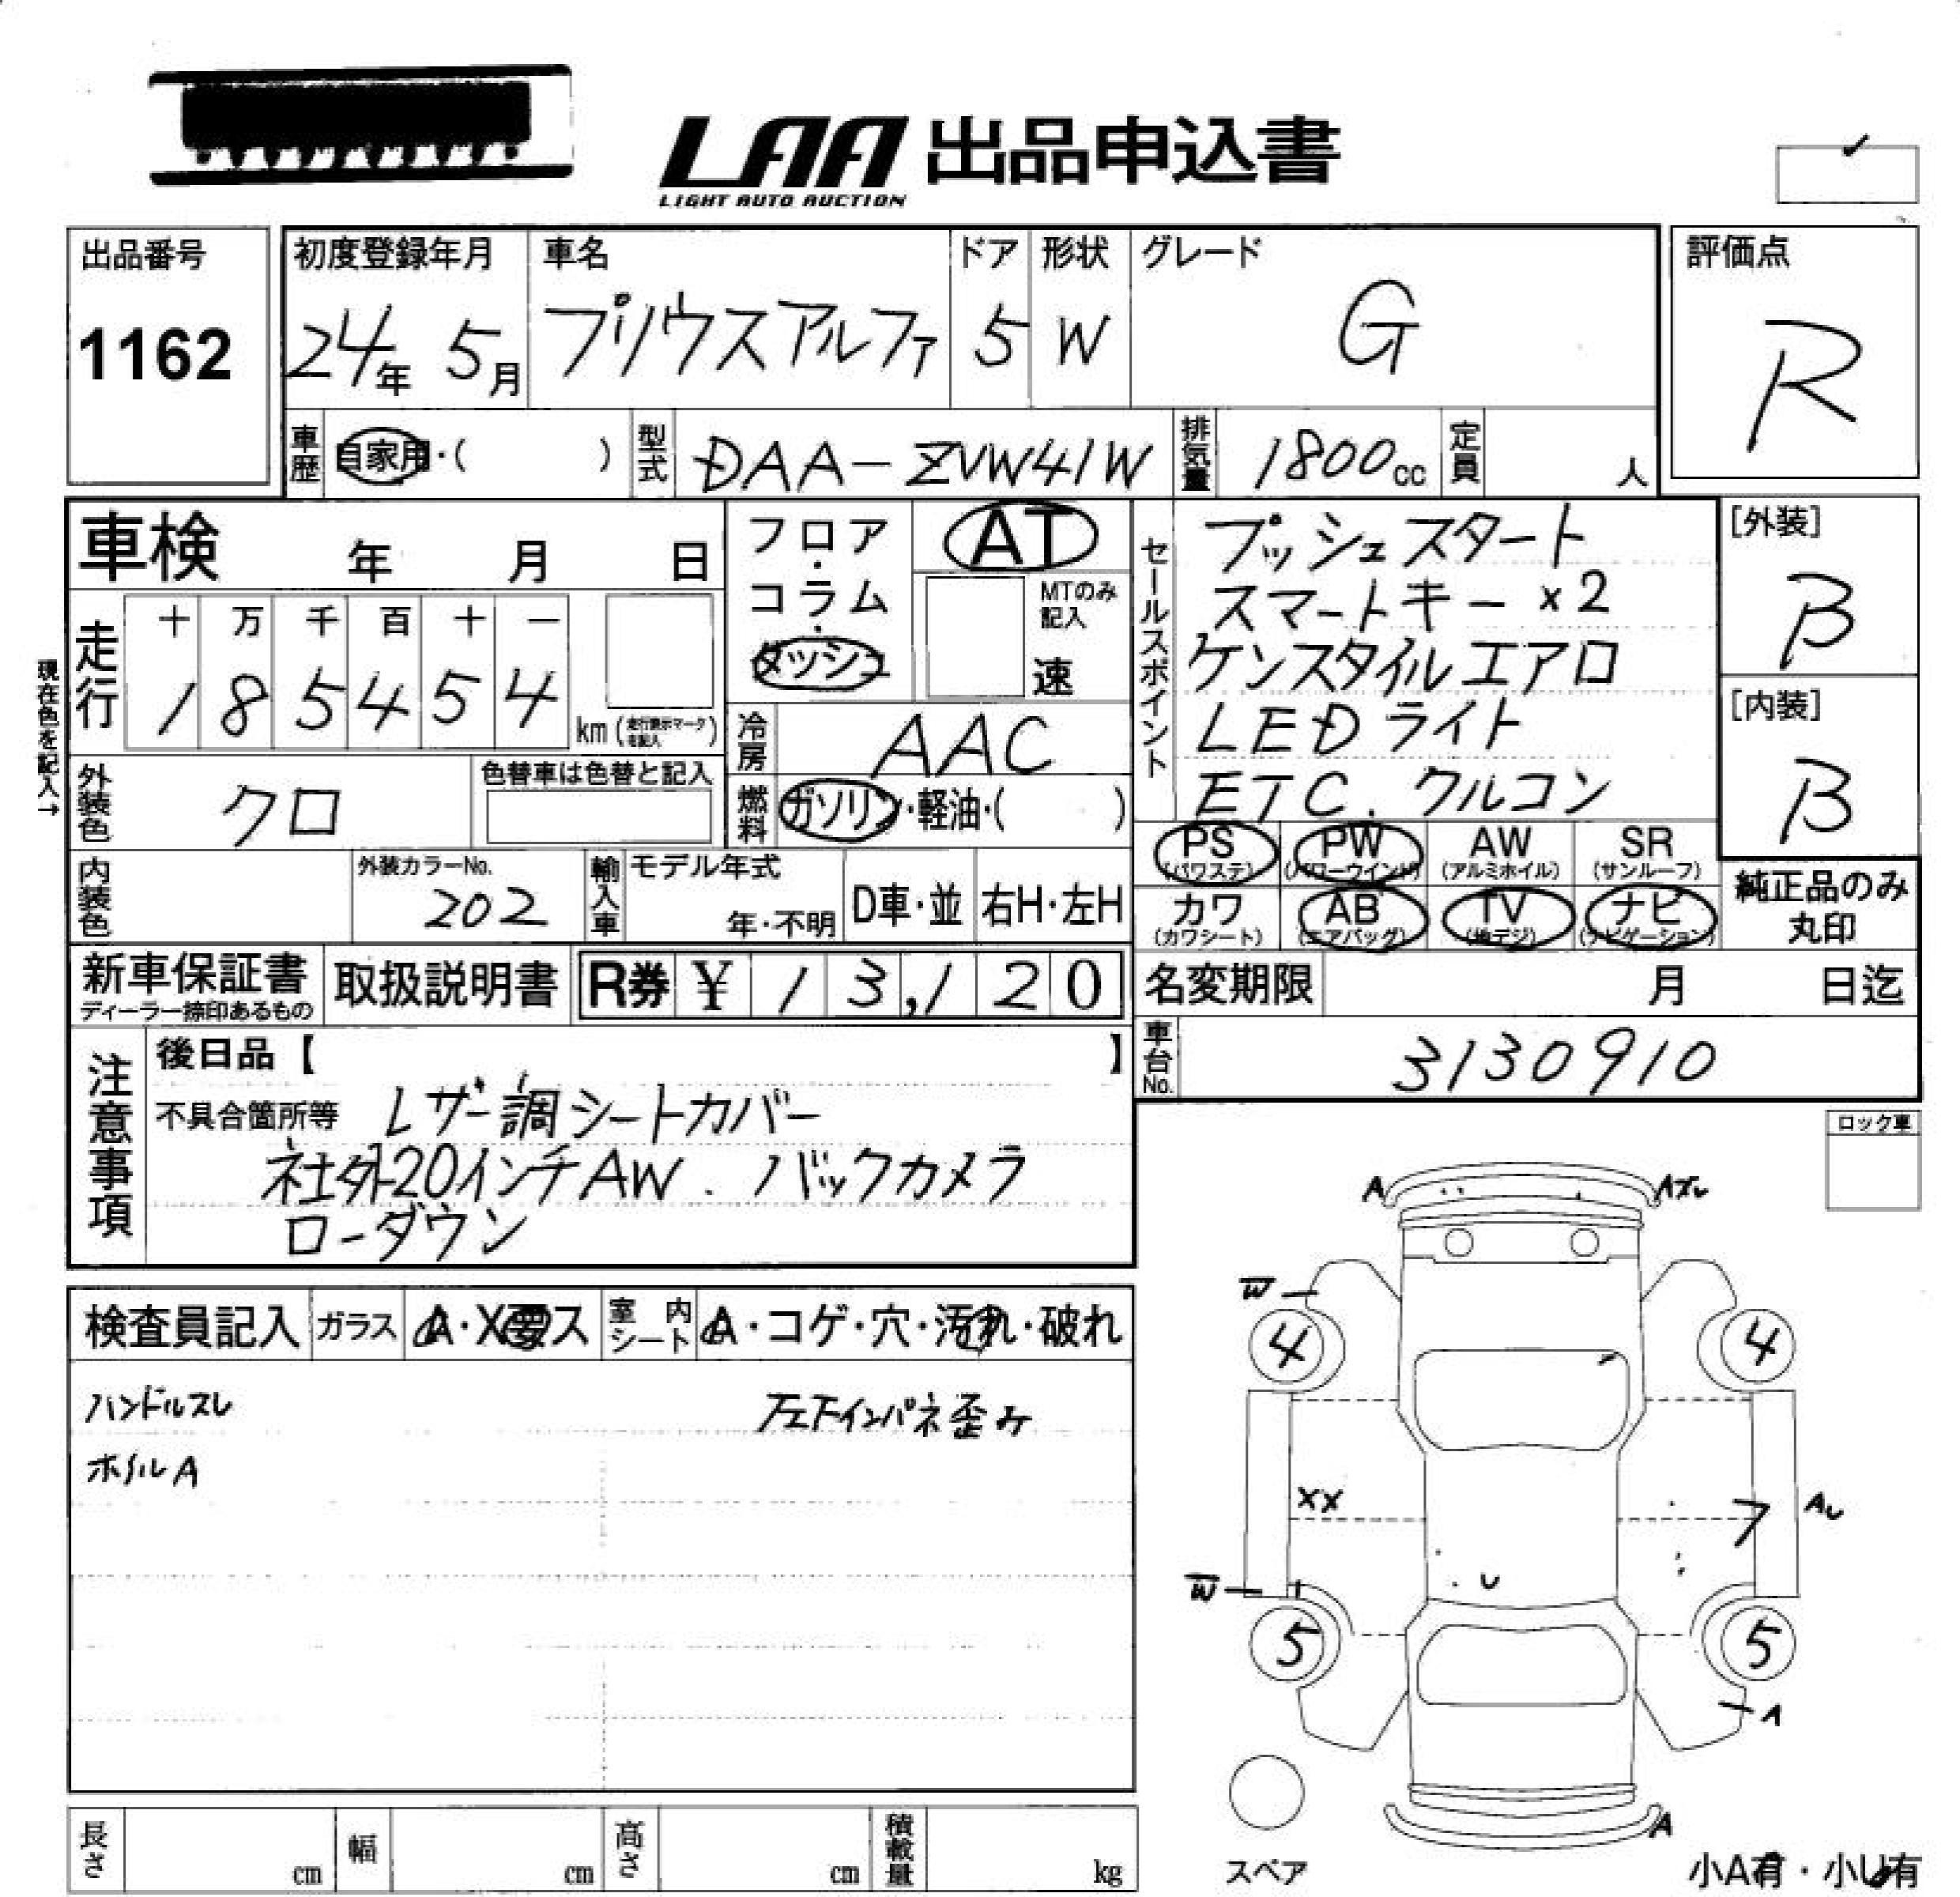 LAA 出品申込書
LIGHT AUTO AUCTION
出品番号
1162
初度登録年月
24年 5月
車名
プリウスアルファ
ドア
5
形状
W
グレード
G
評価点
R
車歴
自家用・( )
型式
DAA-ZVW41W
排気量
1800cc
定員
人
車検 年 月 日
フロア・コラム・ダッシュ
AT
MTのみ記入
速
セールスポイント
プッシュスタート
スマートキー ×2
ケンスタイルエアロ
LEDライト
ETC. クルコン
[外装]
B
[内装]
B
現在色を記入→
走行
十 万 千 百 十 一
1 8 5 4 5 4
km (走行表示マークを記入)
冷房
AAC
外装色
クロ
色替車は色替と記入
燃料
ガソリン・軽油・( )
PS (パワステ)
PW (パワーウインド)
AW (アルミホイル)
SR (サンルーフ)
カワ (カワシート)
AB (エアバッグ)
TV (地デジ)
ナビ (ナビゲーション)
純正品のみ
丸印
内装色
外装カラーNo.
202
輸入車
モデル年式
年・不明
D車・並
右H・左H
新車保証書
ディーラー捺印あるもの
取扱説明書
R券 ¥ 13,120
名変期限 月 日迄
車台No.
3130910
注意事項
後日品【 】
不具合箇所等 レザー調シートカバー
社外20インチAW. バックカメラ
ローダウン
ロック車
検査員記入
ガラス
A・X要ス
室内シート
A・コゲ・穴・汚れ・破れ
ハンドルスレ
左下インパネ歪み
ホイルA
A
W
4
4
XX
7
AU
W
U
5
5
A
A
スペア
長さ cm
幅 cm
高さ cm
積載量 kg
小A有・小U有